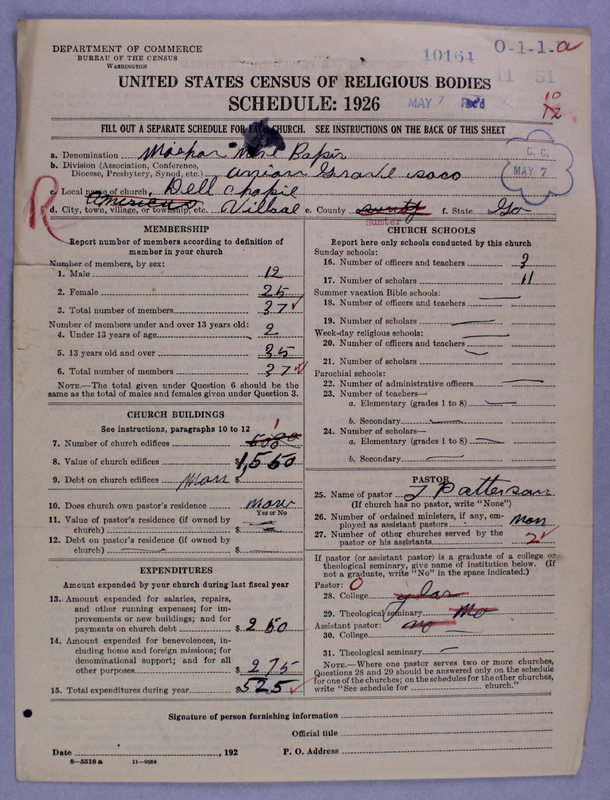 DEPARTMENT OF COMMERCE
BUREAU OF THE CENSUS
WASHINGTON
10164
O-1-1-a
11 51
UNITED STATES CENSUS OF RELIGIOUS BODIES
SCHEDULE: 1926
MAY 7 Rec'd
10
12
FILL OUT A SEPARATE SCHEDULE FOR EACH CHURCH. SEE INSTRUCTIONS ON THE BACK OF THIS SHEET
a. Denomination
b. Division (Association, Conference, Diocese, Presbytery, Synod, etc.) union Grove
C. C.
MAY 7
R
c. Local name of church, Dell chapil
d. City, town, village, or township, etc. Americus Villag e. County Sumter f. State Ga
MEMBERSHIP
Report number of members according to definition of
member in your church
Number of members, by sex:
1. Male 12
2. Female 25
3. Total number of members 37
Number of members under and over 13 years old:
4. Under 13 years of age 2
5. 13 years old and over 35
6. Total number of members 37
NOTE.—The total given under Question 6 should be
same as the total of males and females given under Question 3.
CHURCH BUILDINGS
See instructions, paragraphs 10 to 12
7. Number of church edifices 1
8. Value of church edifices $1,550
9. Debt on church edifices $
10. Does church own pastor's residence
Yes or No
11. Value of pastor's residence (if owned by
church) $
12. Debt on pastor's residence (if owned by
church) $
EXPENDITURES
Amount expended by your church during last fiscal year
13. Amount expended for salaries, repairs,
and other running expenses; for im-
provements or new buildings; and for
payments on church debt $250
14. Amount expended for benevolences, in-
cluding home and foreign missions; for
denominational support; and for all
other purposes $275
15. Total expenditures during year $525
CHURCH SCHOOLS
Report here only schools conducted by this church
Sunday schools:
16. Number of officers and teachers 3
17. Number of scholars 11
Summer vacation Bible schools:
18. Number of officers and teachers
19. Number of scholars
Week-day religious schools:
20. Number of officers and teachers
21. Number of scholars
Parochial schools:
22. Number of administrative officers
23. Number of teachers—
a. Elementary (grades 1 to 8)
b. Secondary
24. Number of scholars—
a. Elementary (grades 1 to 8)
b. Secondary
PASTOR
25. Name of pastor J Patterson
(If church has no pastor, write "None")
26. Number of ordained ministers, if any, em-
ployed as assistant pastors
27. Number of other churches served by the
pastor or his assistants 2
If pastor (or assistant pastor) is a graduate of a college or
theological seminary, give name of institution below. (If
not a graduate, write "No" in the space indicated.)
Pastor: O
28. College
29. Theological seminary No
Assistant pastor: no
30. College
31. Theological seminary
NOTE.—Where one pastor serves two or more churches,
Questions 28 and 29 should be answered only on the schedule
for one of the churches; on the schedules for the other churches,
write "See schedule for church."
Signature of person furnishing information
Official title
Date , 192 P. O. Address
8—5518 a 11—9084